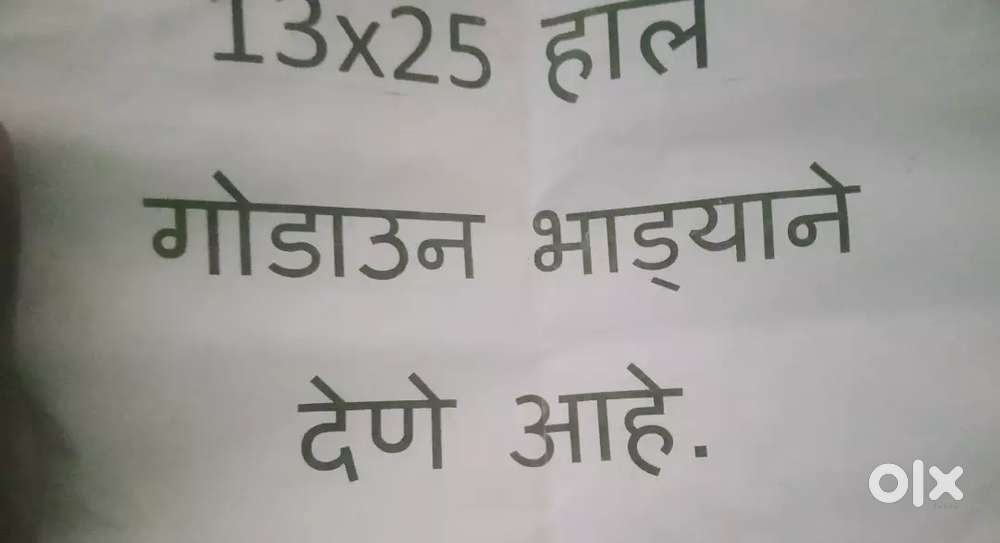 13x25 हाल
गोडाउन भाड्याने
देणे आहे.
olx